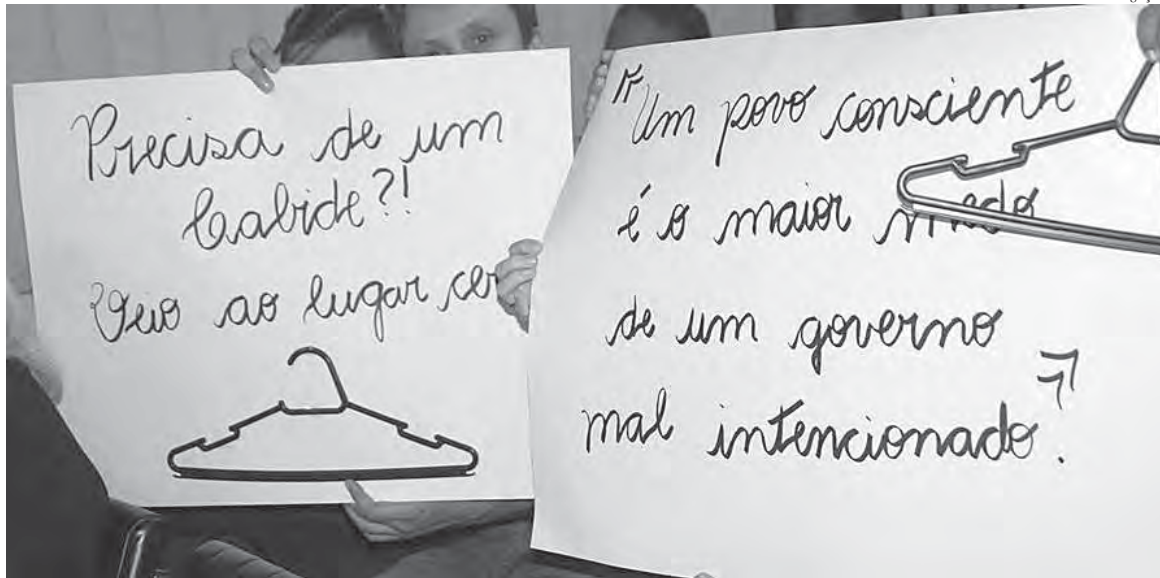 Precisa de um
Cabide?!
Veio ao lugar cer
"Um povo consciente
é o maior medo
de um governo
mal intencionado".